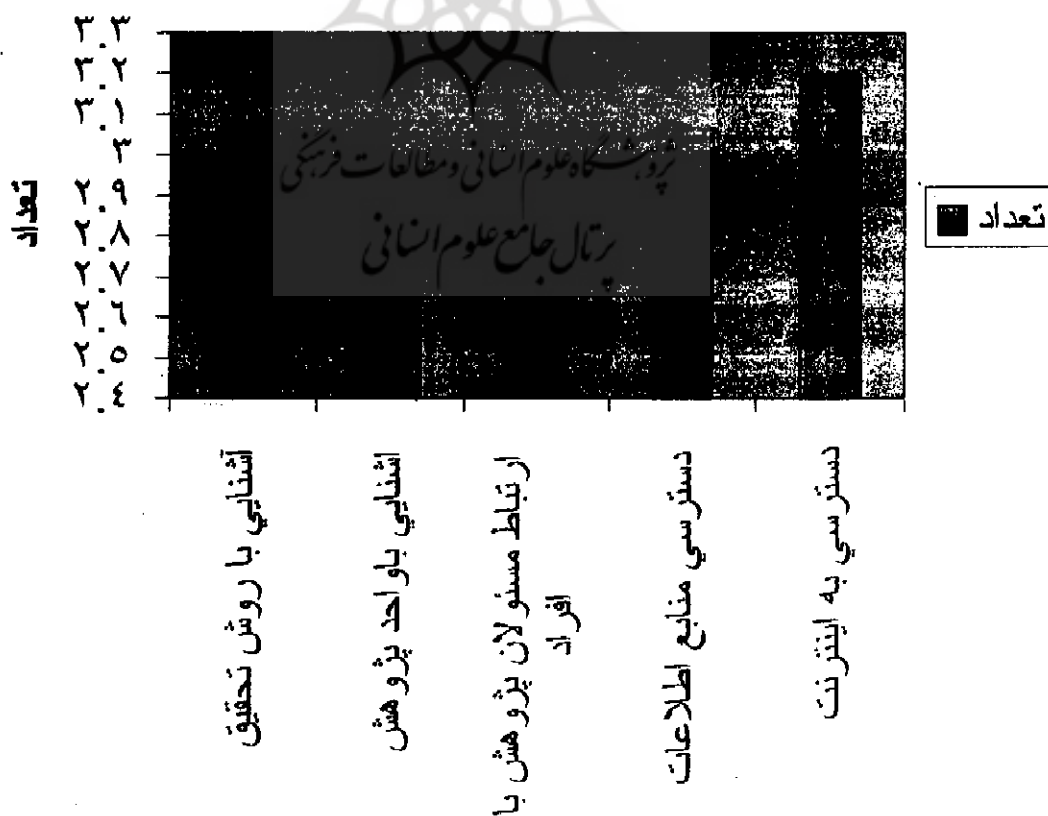 ۳.۳
۳.۲
۳.۱
۳
۲.۹
۲.۸
۲.۷
۲.٦
۲.۵
۲.٤
تعداد
پژوهشگاه علوم انسانی و مطالعات فرهنگی
پرتال جامع علوم انسانی
تعداد
آشنايي با روش تحقيق
اشنايي باواحد پژوهش
ارتباط مسئولان پژوهش با
افراد
دسترسي منابع اطلاعات
دسترسي به اينترنت